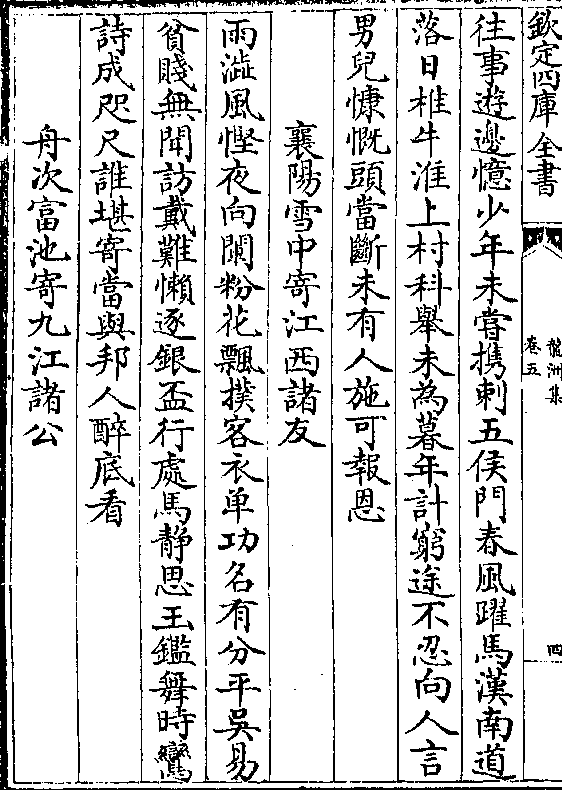 欽定四庫全書
龍洲集
卷五
四
往事遊邊憶少年未嘗携刺五侯門春風躍馬漢南道
落日椎牛淮上村科舉未為暮年計窮途不忍向人言
男兒慷慨頭當斷未有人施可報恩
襄陽雪中寄江西諸友
雨澁風慳夜向闌粉花飄撲客衣单功名有分平吳易
貧賤無聞訪戴難懶逐銀盃行處馬静思玉鑑舞時鸞
詩成咫尺誰堪寄當與邦人醉底看
舟次富池寄九江諸公